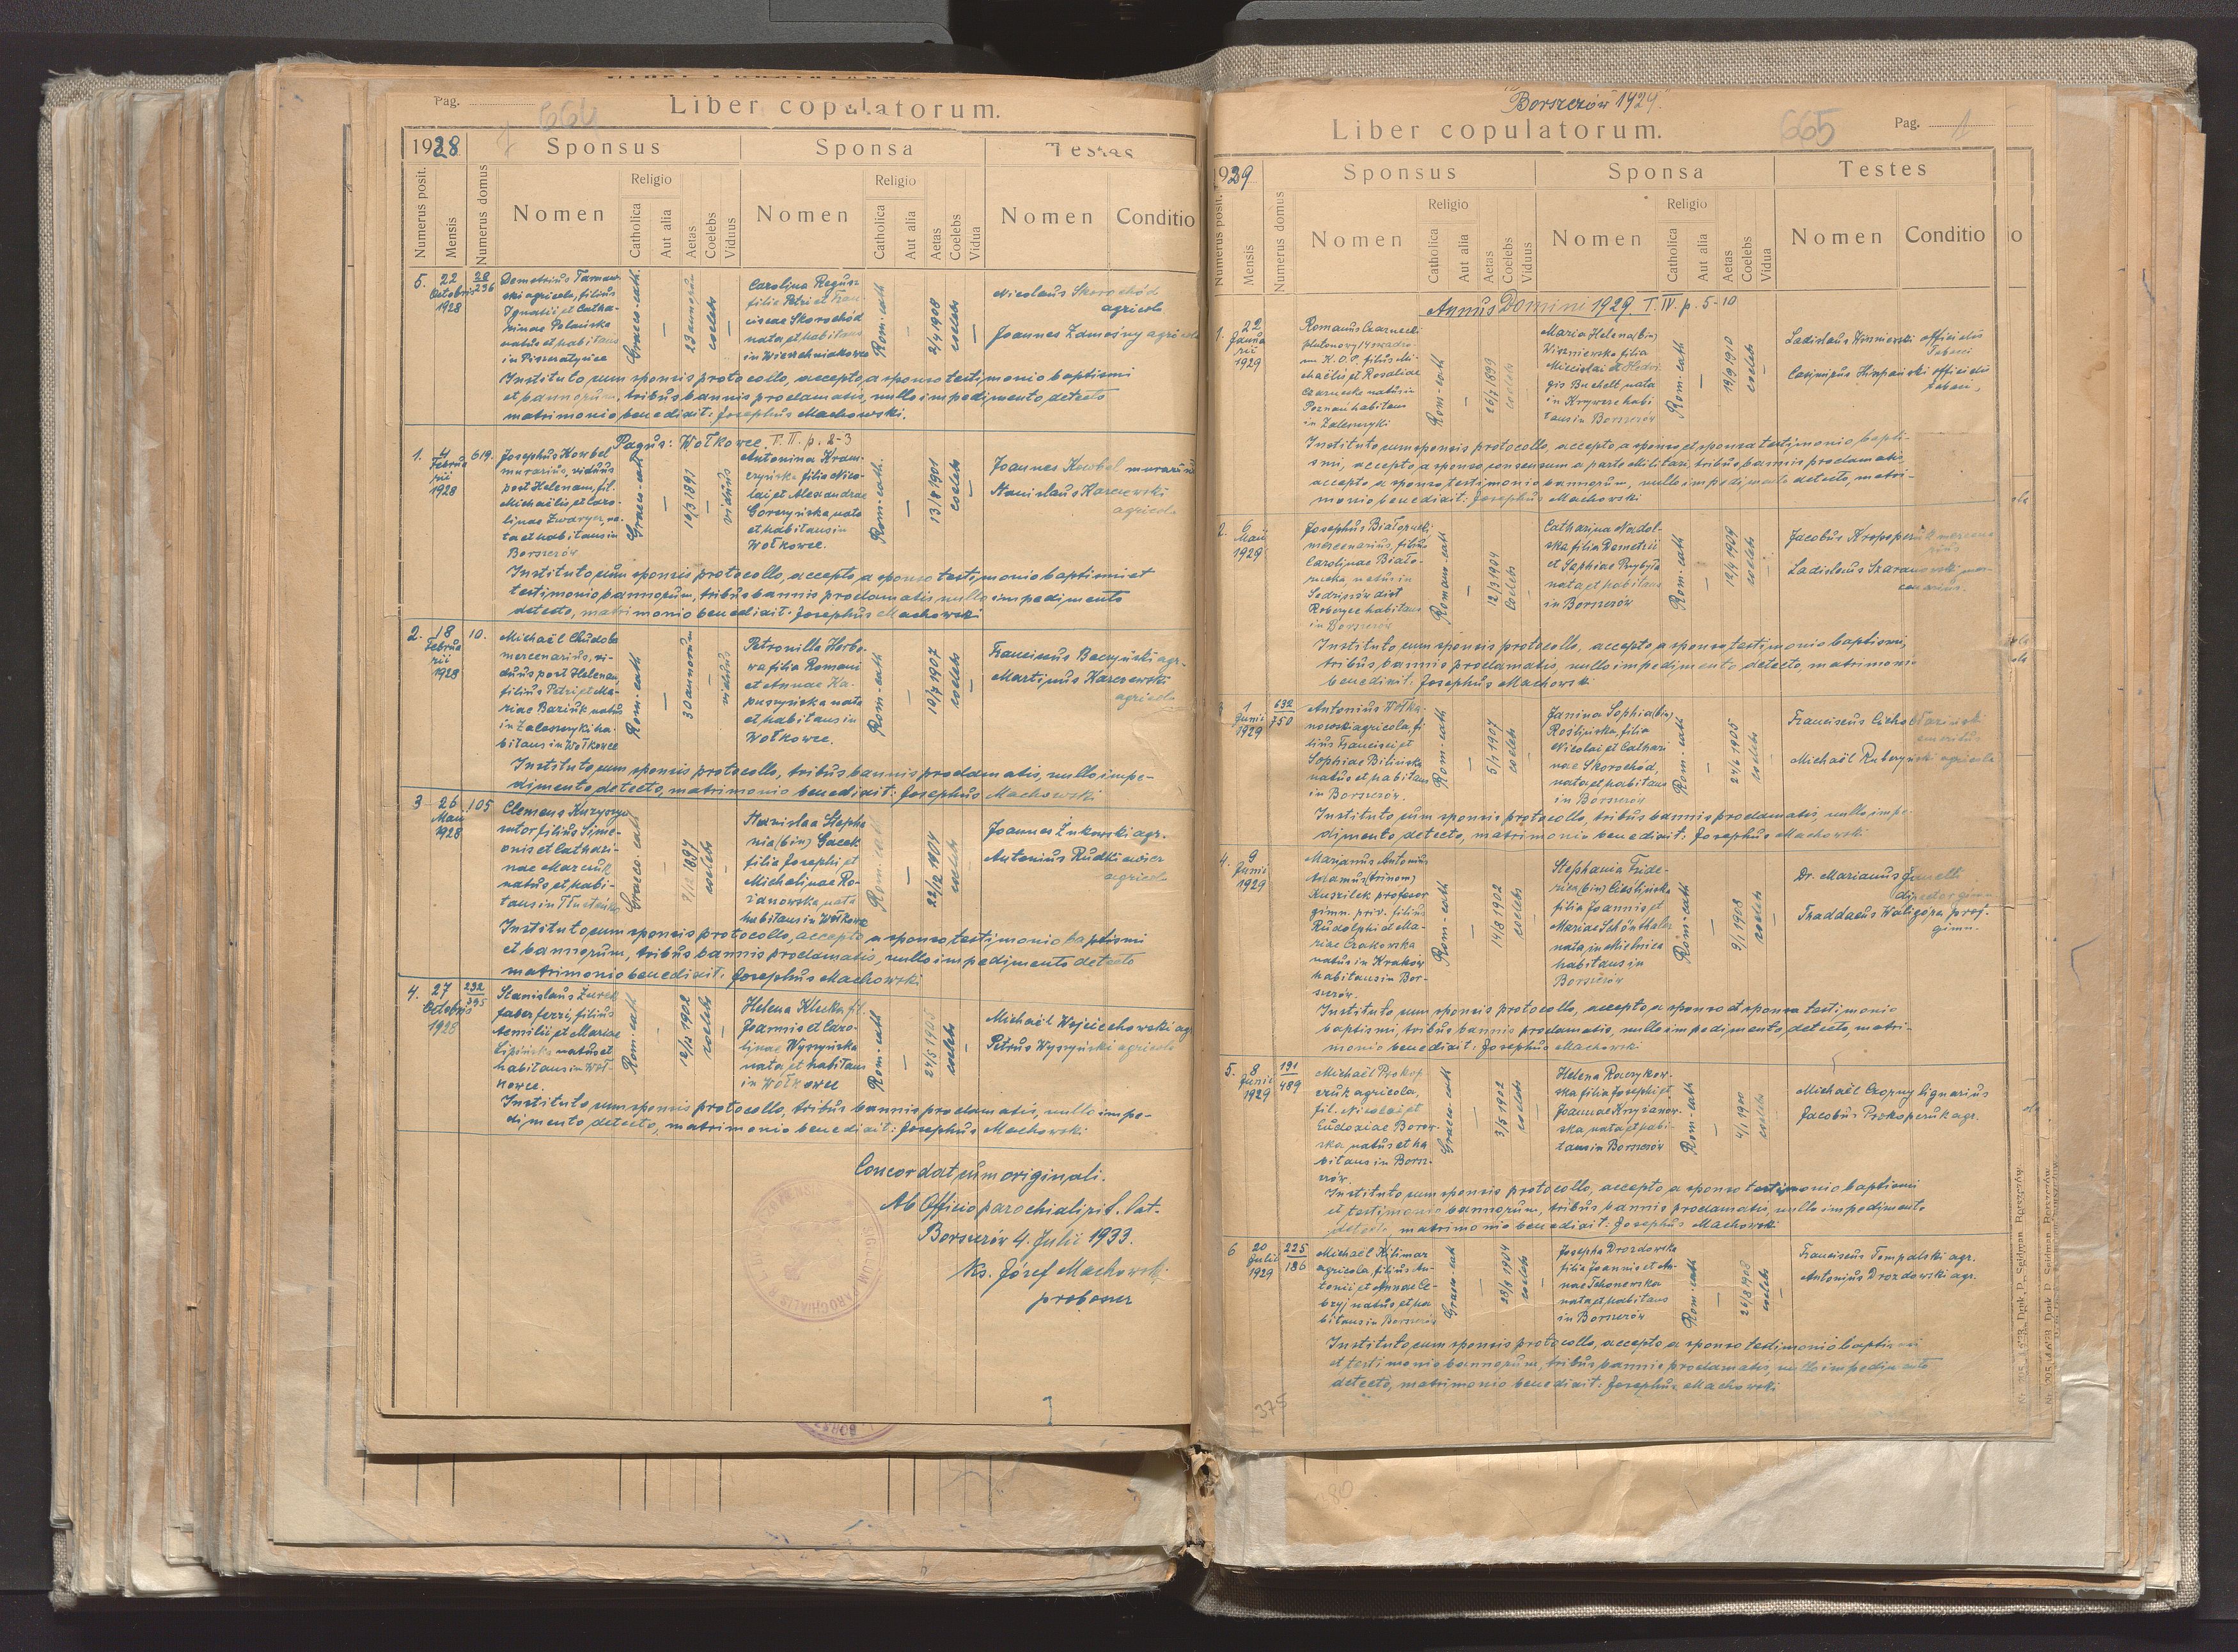 Pag. 664
Liber copulatorum.
1928
Sponsus Sponsa Testes
Numerus posit. Mensis Numerus domus Nomen Religio Catholica Aut alia Aetas Coelebs Viduus Nomen Religio Catholica Aut alia Aetas Coelebs Vidua Nomen Conditio
5. 22 Octobris 1928 236
Demetrius Tarnaw-
ski agricola, filius
Ignatii et Catha-
rinae Polańska
natus et habitans
in Piszczatyńce
Graeco-cath. — 23 annorum coelebs —
Carolina Regusz
filia Petri et Fran-
ciscae Skorochód
nata et habitans
in Wierzchniakowce
Rom-cath — 2/4 1908 coelebs —
Nicolaus Skorochód
agricola
Joannes Zamośny agricola
Instituto cum sponsis protocollo, accepto a sponso testimonio baptismi
et bannorum, tribus bannis proclamatis, nullo impedimento detecto
matrimonio benedixit: Josephus Machowski.
Pagus: Wołkowce T. II. p. 2-3
1. 4 Februarii 1928 619.
Josephus Kowbel
murarius, viduus
post Helenam, fil.
Michaëlis et Caro-
linae Zwarycz, na-
tus et habitans in
Borszczów
Graeco-cath — 10/3 1891 — viduus
Antonina Kraw-
czyńska filia Nico-
lai et Alexandrae
Gorczyńska, nata
et habitans in
Wołkowce.
Rom-cath. — 13/8 1901 coelebs —
Joannes Kowbel murarius
Stanislaus Karczewski
agricola
Instituto cum sponsis protocollo, accepto a sponso testimonio baptismi et
testimonio bannorum, tribus bannis proclamatis, nullo impedimento
detecto, matrimonio benedixit: Josephus Machowski
2. 18 Februarii 1928 10.
Michaël Chudoba
mercenarius, vi-
duus post Helenam,
filius Petri et Ma-
riae Bariuk natus
in Zaleszczyki ha-
bitans in Wołkowce
Rom-cath — 30 annorum — viduus
Petronilla Horbo-
wa filia Romani
et Annae Ka-
puszyńska nata
et habitans in
Wołkowce.
Rom-cath — 10/7 1907 coelebs —
Franciscus Baczyński agr.
Martinus Karczewski
agricola
Instituto cum sponsis protocollo, tribus bannis proclamatis, nullo impe-
dimento detecto, matrimonio benedixit: Josephus Machowski
3 26 Maii 1928 105
Clemens Kuryszyn
sutor filius Sime-
onis et Cathari-
nae Marciuk
natus et habi-
tans in Tłusteńkie
Graeco-cath — 1897 coelebs —
Stanislaa Stepha-
nia (bin) Gacek
filia Josephi et
Michalinae Ro-
żanowska, nata
habitans in Wołkowce
Rom-cath — 22/12 1904 coelebs —
Joannes Żukowski agr.
Antonius Rudkiewicz
agricola
Instituto cum sponsis protocollo, accepto a sponso testimonio baptismi
et bannorum, tribus bannis proclamatis, nullo impedimento detecto
matrimonio benedixit: Josephus Machowski
4. 27 Octobris 1928 232
Stanislaus Żurek
faber ferri, filius
Aemilii et Mariae
Lipińska natus et
habitans in Woł-
kowce.
Rom-cath — 12/12 1902 coelebs —
Helena Klecka fil.
Joannis et Caro-
linae Wyszyńska
nata et habitans
in Wołkowce
Rom-cath — 24/5 1905 coelebs —
Michaël Wojciechowski agr
Petrus Wyszyński agricola
Instituto cum sponsis protocollo, tribus bannis proclamatis, nullo impe-
dimento detecto, matrimonio benedixit: Josephus Machowski
Concordat cum originali.
Ab Officio parochiali rit. lat.
Borszczów 4. Julii 1933.
Ks. Józef Machowski
proboszcz
Borszczów 1929.
Liber copulatorum. 665 Pag. 1
1929
Sponsus Sponsa Testes
Numerus posit. Mensis Numerus domus Nomen Religio Catholica Aut alia Aetas Coelebs Viduus Nomen Religio Catholica Aut alia Aetas Coelebs Vidua Nomen Conditio
Annus Domini 1929. T. IV. p. 5-10
1. 22 Januarii 1929
Romanus Czarnecki
plutonowy 14 szwadro-
nu K.O.P. filius Mi-
chaëlis et Rosaliae
Czarnecka natus in
Poznań habitans
in Zaleszczyki
Rom-cath — 26/7 1899 coelebs —
Maria Helena (bin)
Wiszniewska filia
Miecislai et Hedvi-
gis Buchelt, nata
in Krzywcze habi-
tans in Borszczów
Rom-cath — 19/9 1910 coelebs —
Ladislaus Wiszniewski officialis
Tabaci
Casimirus Hiszpański officialis
Tabaci,
Instituto cum sponsis protocollo, accepto a sponso et sponsa testimonio bapti-
smi, accepto a sponso consensum a parte Militari, tribus bannis proclamatis,
accepto a sponso testimonio bannorum, nullo impedimento detecto, matri-
monio benedixit: Josephus Machowski
2. 6 Maii 1929
Josephus Białorucki
mercenarius, filius
Carolinae Biało-
rucka natus in
Sędziszów dist
Ropczyce habitans
in Borszczów
Romano-cath — 12/3 1904 coelebs —
Catharina Nadol-
ska filia Demetrii
et Sophiae Przybyła
nata et habitans
in Borszczów
Rom-cath — 12/4 1909 coelebs —
Jacobus Prokopczuk mercena-
rius
Ladislaus Szaranowski mer-
cenarius.
Instituto cum sponsis protocollo, accepto a sponso testimonio baptismi,
tribus bannis proclamatis, nullo impedimento detecto, matrimonio
benedixit: Josephus Machowski
3 1 Junii 1929 632 750
Antonius Wołka-
nowski agricola, fi-
lius Francisci et
Sophiae Bilińska
natus et habitans
in Borszczów.
Rom-cath — 5/1 1907 coelebs —
Janina Sophia (bin)
Roslińska, filia
Nicolai et Cathari-
nae Skorochód,
nata et habitans
in Borszczów
Rom-cath — 24/6 1905 coelebs —
Franciscus Cichobłaziński
emeritus
Michaël Ruberyński agricola
Instituto cum sponsis protocollo, tribus bannis proclamatis, nullo impe-
dimento detecto, matrimonio benedixit: Josephus Machowski
4. 9 Junii 1929
Marianus Antonius
Adamus (trinom)
Kuszilek profesor
gimn. priv. filius
Rudolphi et Ma-
riae Czakowska
natus in Kraków
habitans in Bor-
szczów.
Rom-cath — 14/8 1902 coelebs —
Stephania Fride-
rica (bin) Cieślińska
filia Joannis et
Mariae Schönthaler
nata in Mielnica
habitans in
Borszczów
Rom-cath — 9/1 1908 coelebs —
Dr. Marianus Janelli
director gimn
Thaddaeus Waligóra prof.
gimn.
Instituto cum sponsis protocollo, accepto a sponso et sponsa testimonio
baptismi, tribus bannis proclamatis, nullo impedimento detecto, matri-
monio benedixit: Josephus Machowski
5. 8 Junii 1929 191 489
Michaël Prokop-
czuk agricola,
fil. Nicolai et
Eudoxiae Borow-
ska, natus et ha-
bitans in Borsz-
czów.
Graeco-cath — 3/5 1902 coelebs —
Helena Raczykow-
ska filia Josephi et
Joannae Kryżanow-
ska, nata et habi-
tans in Borszczów
Rom-cath — 4/1 1900 coelebs —
Michaël Czorny lignarius
Jacobus Prokopczuk agr.
Instituto cum sponsis protocollo, accepto a sponso testimonio baptismi
et testimonio bannorum, tribus bannis proclamatis, nullo impedimento
detecto matrimonio benedixit: Josephus Machowski
6 20 Julii 1929 225 186
Michaël Kilimar
agricola, filius An-
tonii et Annae Ce-
bryj natus et ha-
bitans in Borszczów
Graeco-cath — 23/8 1904 coelebs —
Josepha Drozdowska
filia Joannis et An-
nae Tchonewska
nata et habitans
in Borszczów
Rom-cath — 26/8 1908 coelebs —
Franciscus Tempalski agr.
Antonius Drozdowski agr.
Instituto cum sponsis protocollo, accepto a sponso testimonio baptismi
et testimonio bannorum, tribus bannis proclamatis, nullo impedimento
detecto, matrimonio benedixit: Josephus Machowski
375
80